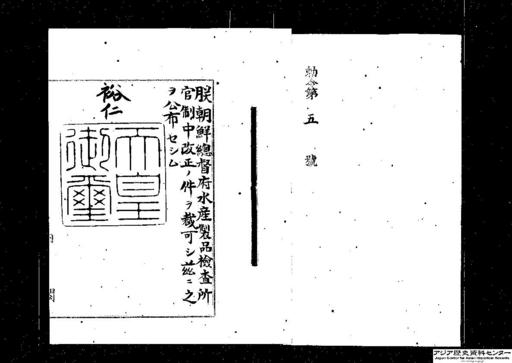 勅令第五號
朕朝鮮總督府水産製品檢査所
官制中改正ノ件ヲ裁可シ茲ニ之
ヲ公布セシム
裕仁
天皇
御璽
アジア歴史資料センター
Japan Center for Asian Historical Records